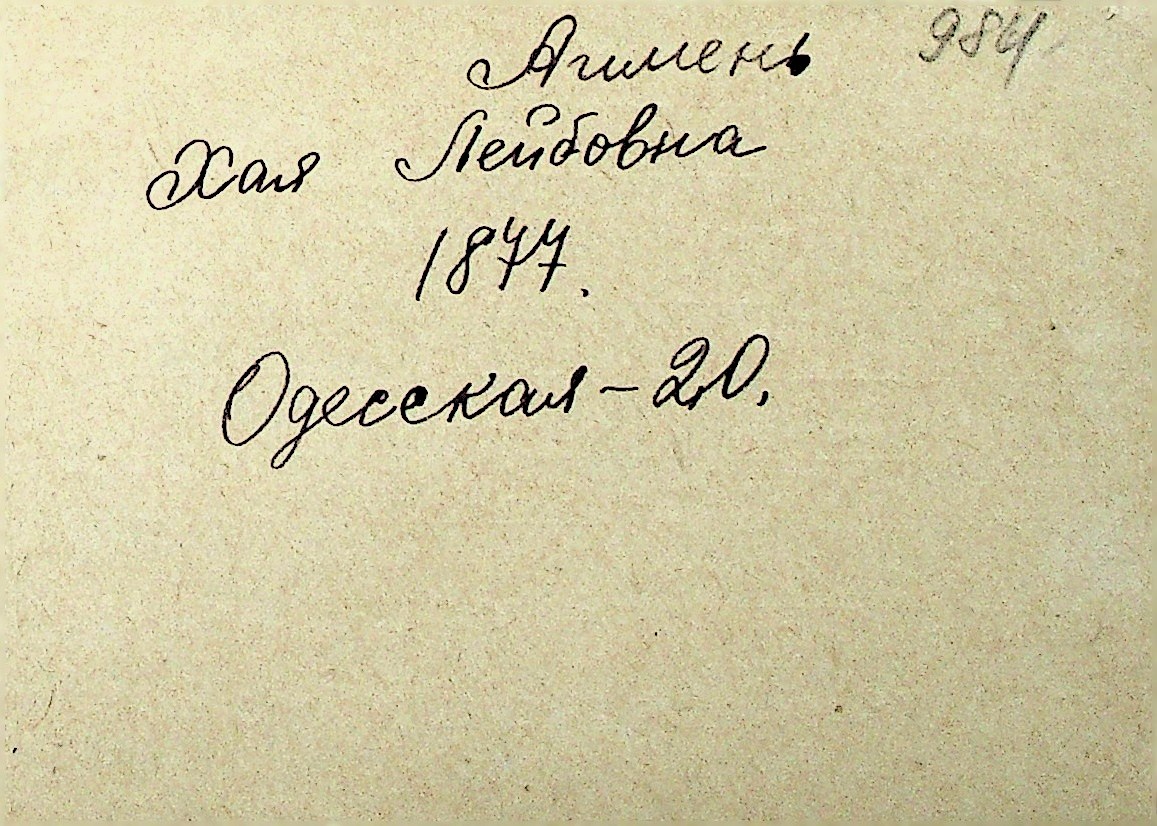 Агимень 984
Хая Лейбовна
1877.
Одесская – 20.